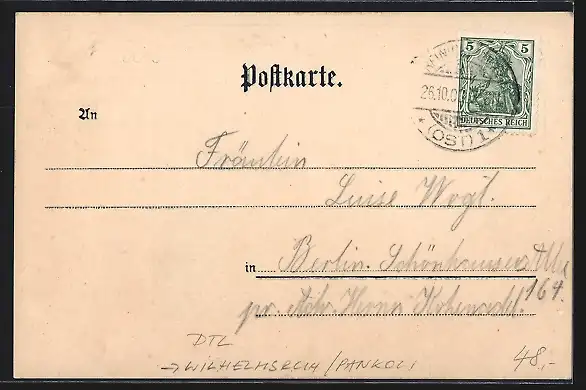 5 5
DEUTSCHES REICH
26.10.0
(OST) 1
Postkarte.
An
Fräulein
Luise Vogt.
in Berlin. Schönhauser Allee
164.
pr. Adr. Herrn
DTL
→ WILHELMSRUH / PANKOW
48,-